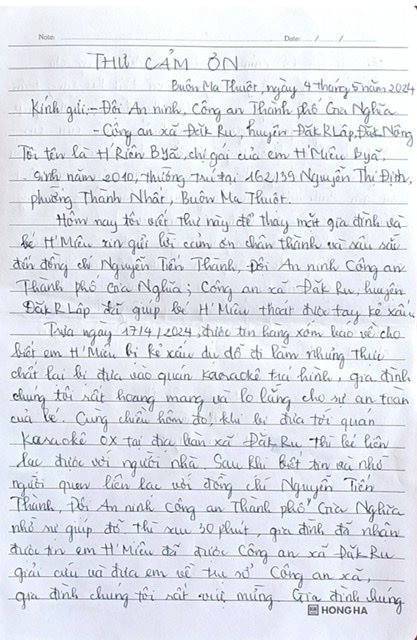 Note: Date: / /
THƯ CẢM ƠN
Buôn Ma Thuột, ngày 4 tháng 5 năm 2024
Kính gửi: - Đội An ninh, Công an Thành phố Gia Nghĩa
- Công an xã Đăk Ru, huyện Đăk RLấp, Đăk Nông
Tôi tên là H'Riên Byă, chị gái của em H'Miêu Byă,
sinh năm 2010, thường trú tại 162/39 Nguyễn Thị Định,
phường Thành Nhất, Buôn Ma Thuột.
Hôm nay tôi viết thư này để thay mặt gia đình và
bé H'Miêu xin gửi lời cảm ơn chân thành và sâu sắc
đến đồng chí Nguyễn Tiến Thành, Đội An ninh Công an
Thành phố Gia Nghĩa; Công an xã Đăk Ru, huyện
Đăk RLấp đã giúp bé H'Miêu thoát được tay kẻ xấu.
Trưa ngày 17/4/2024, được tin hàng xóm báo về cho
biết em H'Miêu bị kẻ xấu dụ dỗ đi làm nhưng thực
chất lại bị đưa vào quán karaoke trá hình, gia đình
chúng tôi rất hoang mang và lo lắng cho sự an toàn
của bé. Cũng chiều hôm đó, khi bị đưa tới quán
Karaoke OX tại địa bàn xã Đăk Ru thì bé liên
lạc được với người nhà. Sau khi biết tin và nhờ
người quen liên lạc với đồng chí Nguyễn Tiến
Thành, Đội An ninh Công an Thành phố Gia Nghĩa
nhờ sự giúp đỡ thì sau 30 phút, gia đình đã nhận
được tin em H'Miêu đã được Công an xã Đăk Ru
giải cứu và đưa em về trụ sở Công an xã,
gia đình chúng tôi rất vui mừng. Gia đình chúng
HONG HA